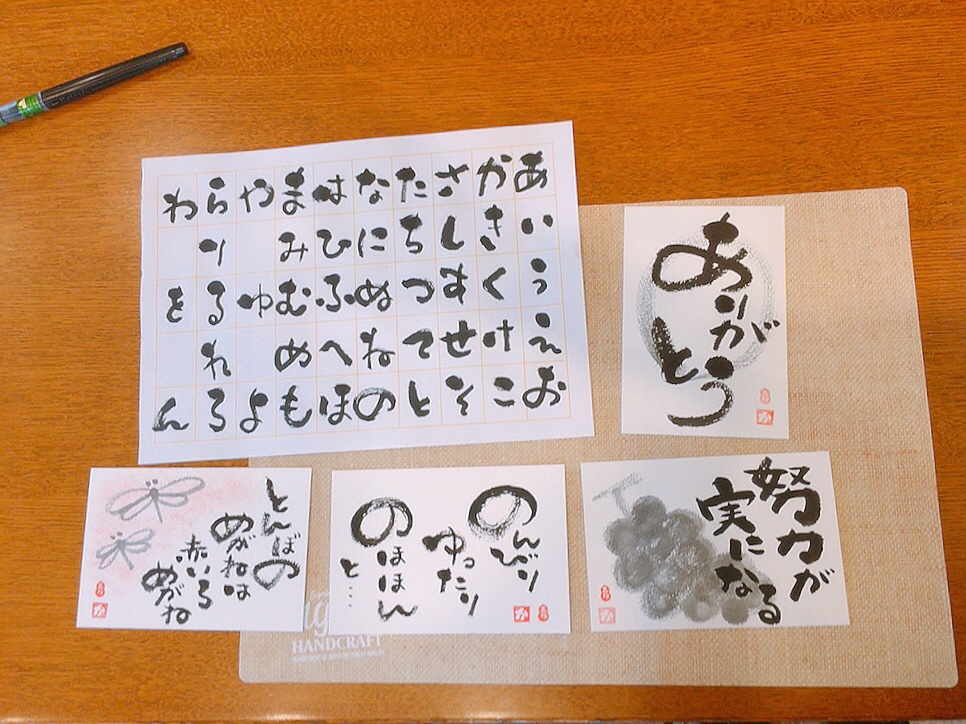 あいうえお
かきくけこ
さしすせそ
たちつてと
なにぬねの
はひふへほ
まみむめも
やゆよ
らりるれろ
わをん
ありが
とう
か
とんぼの
めがねは
赤いろ
めがね
か
のんびり
ゆったり
のほほん
と…
か
努力が
実に
なる
か
HANDCRAFT